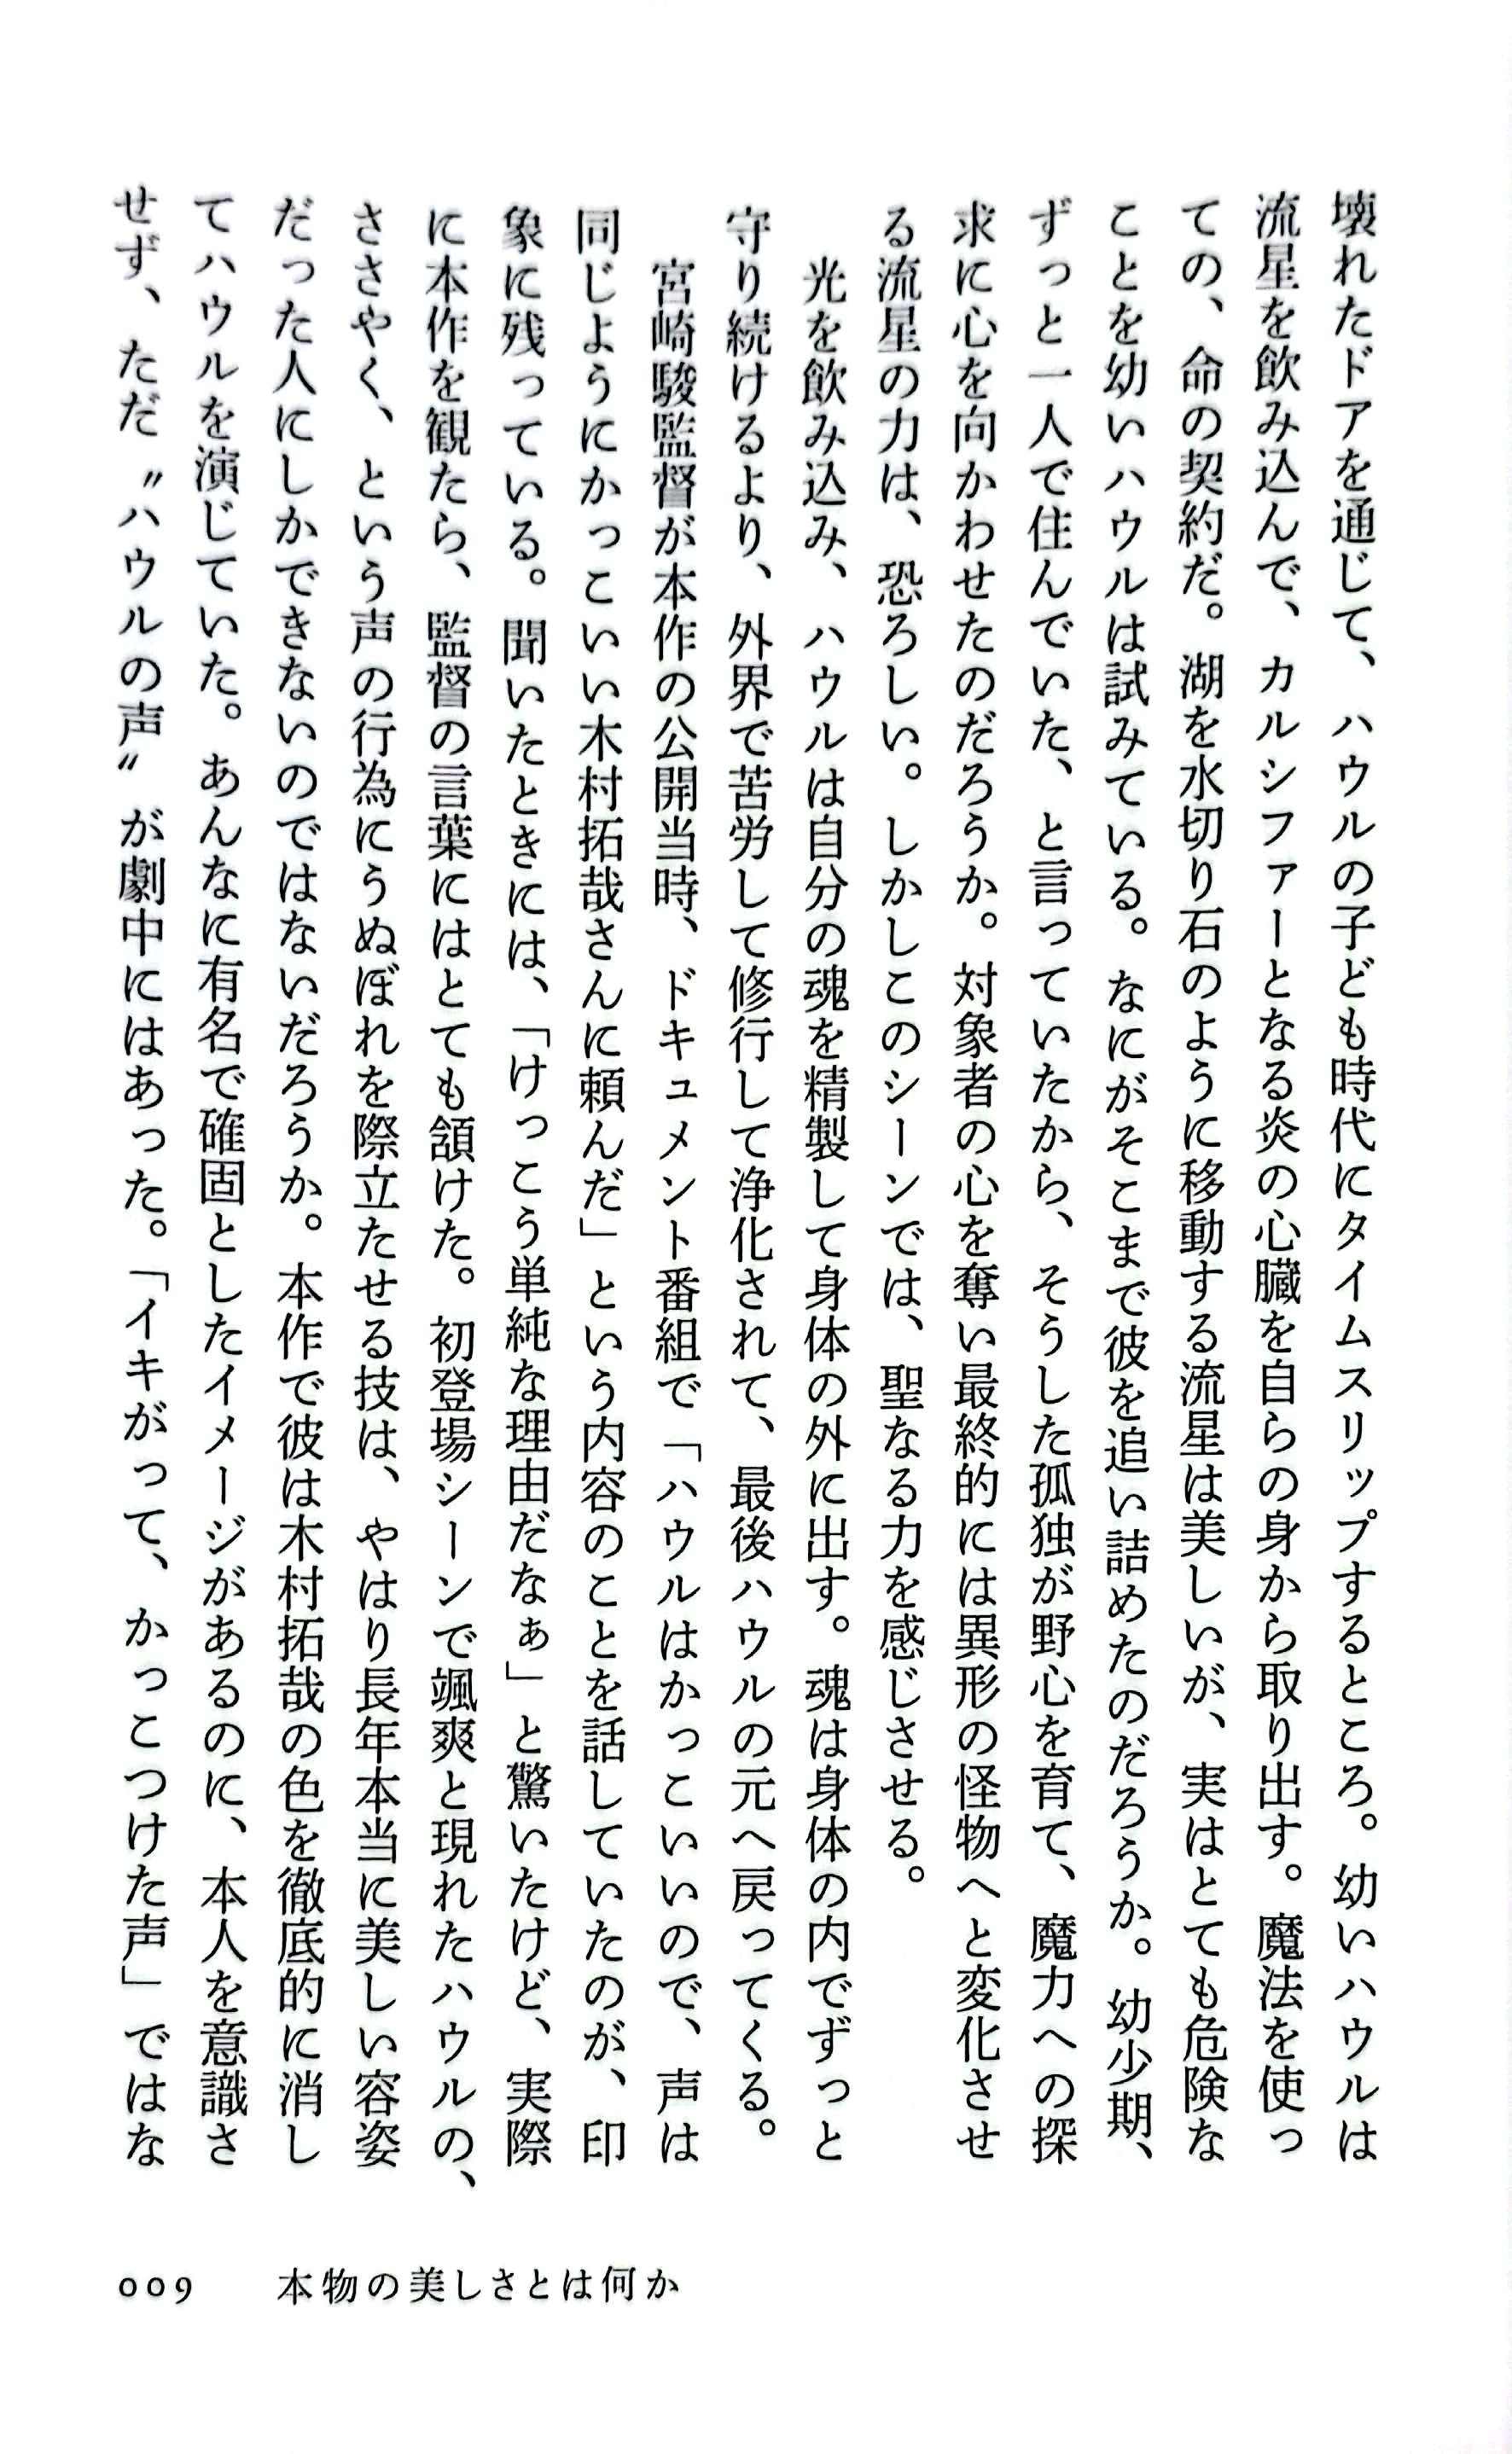 壊れたドアを通じて、ハウルの子ども時代にタイムスリップするところ。幼いハウルは
流星を飲み込んで、カルシファーとなる炎の心臓を自らの身から取り出す。魔法を使っ
ての、命の契約だ。湖を水切り石のように移動する流星は美しいが、実はとても危険な
ことを幼いハウルは試みている。なにがそこまで彼を追い詰めたのだろうか。幼少期、
ずっと一人で住んでいた、と言っていたから、そうした孤独が野心を育て、魔力への探
求に心を向かわせたのだろうか。対象者の心を奪い最終的には異形の怪物へと変化させ
る流星の力は、恐ろしい。しかしこのシーンでは、聖なる力を感じさせる。
　光を飲み込み、ハウルは自分の魂を精製して身体の外に出す。魂は身体の内でずっと
守り続けるより、外界で苦労して修行して浄化されて、最後ハウルの元へ戻ってくる。
　宮崎駿監督が本作の公開当時、ドキュメント番組で「ハウルはかっこいいので、声は
同じようにかっこいい木村拓哉さんに頼んだ」という内容のことを話していたのが、印
象に残っている。聞いたときには、「けっこう単純な理由だなぁ」と驚いたけど、実際
に本作を観たら、監督の言葉にはとても頷けた。初登場シーンで颯爽と現れたハウルの、
ささやく、という声の行為にうぬぼれを際立たせる技は、やはり長年本当に美しい容姿
だった人にしかできないのではないだろうか。本作で彼は木村拓哉の色を徹底的に消し
てハウルを演じていた。あんなに有名で確固としたイメージがあるのに、本人を意識さ
せず、ただ〝ハウルの声〟が劇中にはあった。「イキがって、かっこつけた声」ではな
009　本物の美しさとは何か